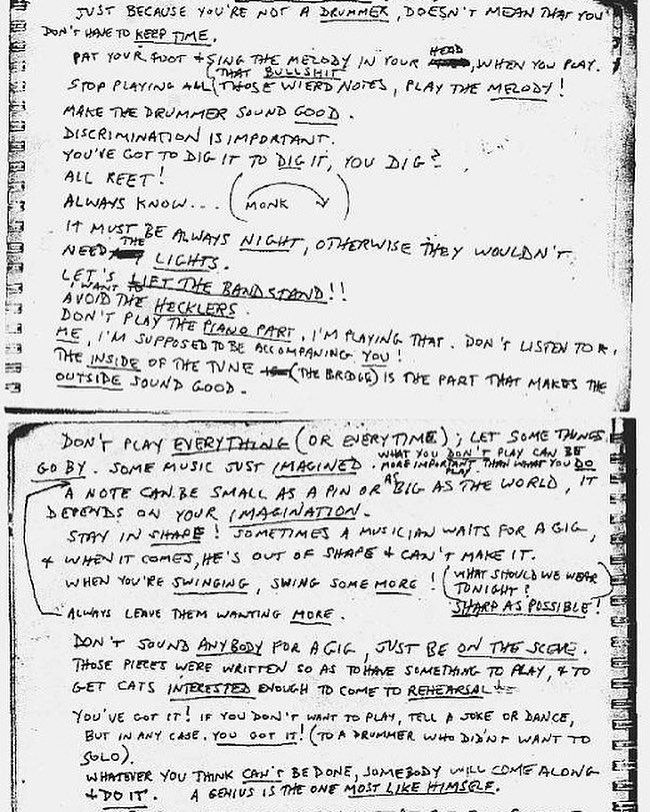 JUST BECAUSE YOU'RE NOT A DRUMMER, DOESN'T MEAN THAT YOU
DON'T HAVE TO KEEP TIME.
PAT YOUR FOOT & SING THE MELODY IN YOUR HEAD, WHEN YOU PLAY.
STOP PLAYING ALL (THAT BULLSHIT) THOSE WIERD NOTES, PLAY THE MELODY!
MAKE THE DRUMMER SOUND GOOD.
DISCRIMINATION IS IMPORTANT.
YOU'VE GOT TO DIG IT TO DIG IT, YOU DIG?
ALL REET!
ALWAYS KNOW... (MONK)
IT MUST BE ALWAYS NIGHT, OTHERWISE THEY WOULDN'T
NEED THE LIGHTS.
LET'S LIFT THE BAND STAND!!
I WANT TO AVOID THE HECKLERS.
DON'T PLAY THE PIANO PART, I'M PLAYING THAT. DON'T LISTEN TO
ME, I'M SUPPOSED TO BE ACCOMPANING YOU!
THE INSIDE OF THE TUNE (THE BRIDGE) IS THE PART THAT MAKES THE
OUTSIDE SOUND GOOD.
DON'T PLAY EVERYTHING (OR EVERYTIME); LET SOME THINGS
GO BY. SOME MUSIC JUST IMAGINED. WHAT YOU DON'T PLAY CAN BE
MORE IMPORTANT THAN WHAT YOU DO PLAY
A NOTE CAN BE SMALL AS A PIN OR AS BIG AS THE WORLD, IT
DEPENDS ON YOUR IMAGINATION.
STAY IN SHAPE! SOMETIMES A MUSICIAN WAITS FOR A GIG,
& WHEN IT COMES, HE'S OUT OF SHAPE & CAN'T MAKE IT.
WHEN YOU'RE SWINGING, SWING SOME MORE!
(WHAT SHOULD WE WEAR
TONIGHT?
SHARP AS POSSIBLE!)
ALWAYS LEAVE THEM WANTING MORE.
DON'T SOUND ANYBODY FOR A GIG, JUST BE ON THE SCENE.
THOSE PIECES WERE WRITTEN SO AS TO HAVE SOMETHING TO PLAY, & TO
GET CATS INTERESTED ENOUGH TO COME TO REHEARSAL!
YOU'VE GOT IT! IF YOU DON'T WANT TO PLAY, TELL A JOKE OR DANCE,
BUT IN ANY CASE, YOU GOT IT! (TO A DRUMMER WHO DIDN'T WANT TO
SOLO).
WHATEVER YOU THINK CAN'T BE DONE, SOMEBODY WILL COME ALONG
& DO IT. A GENIUS IS THE ONE MOST LIKE HIMSELF.